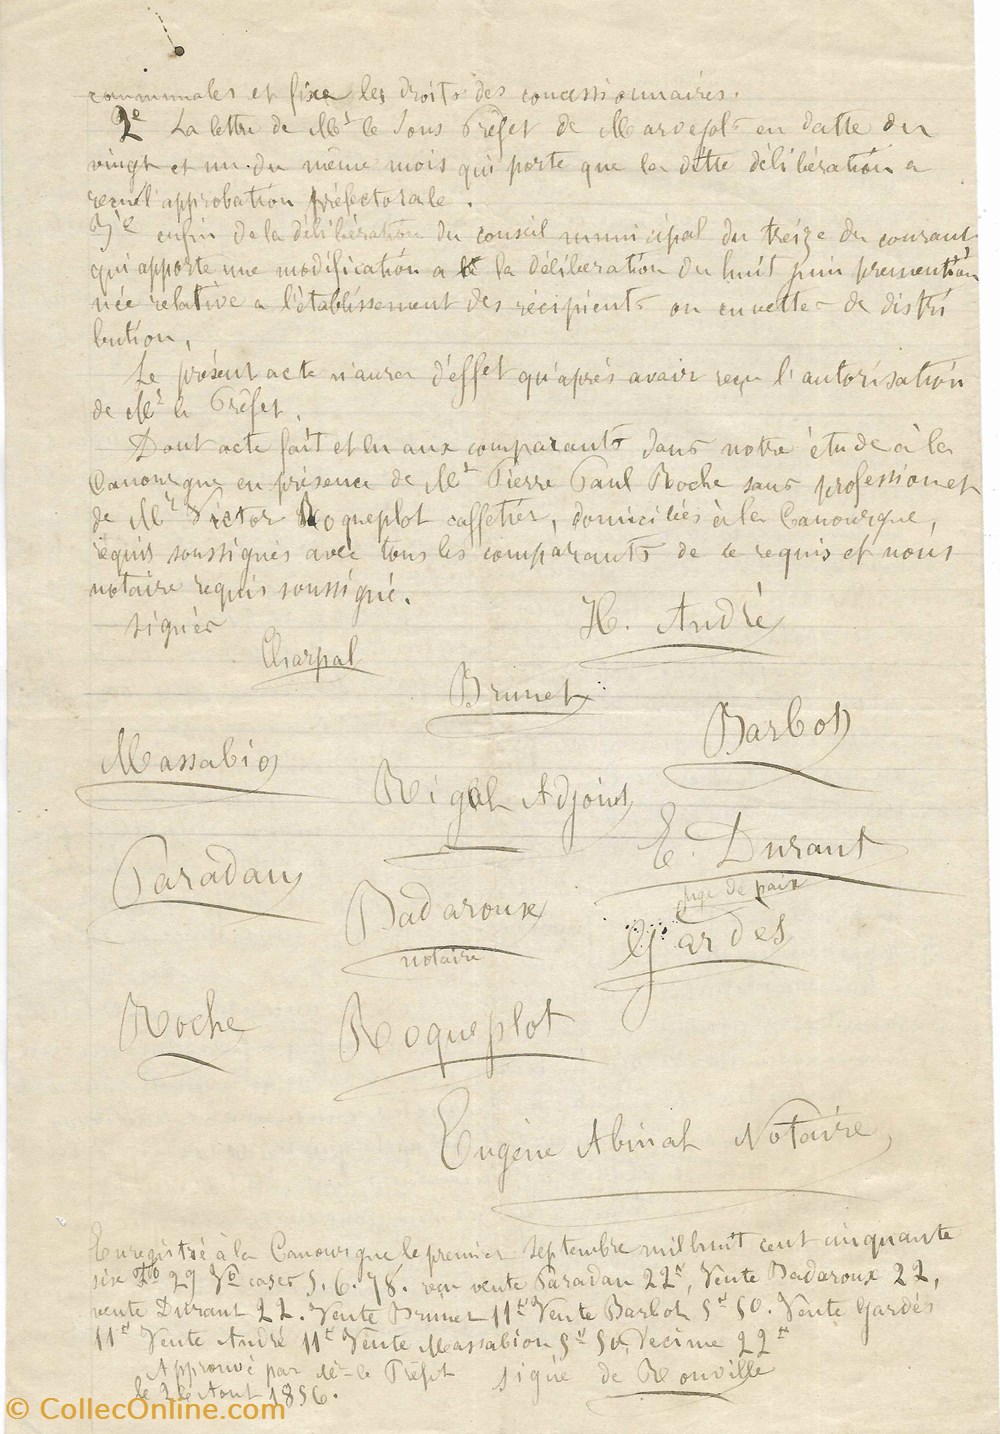 communales et fixe les droits des concessionnaires.
2e La lettre de Mr le Sous Préfet de Marvejols en datte du
vingt et un du même mois qui porte que la ditte délibération a
recu l'approbation préfectorale.
3e enfin de la délibération du conseil municipal du treize du courant
qui apporte une modification a la délibération du huit juin prémention
née relative a l'établissement des récipients ou cuvettes de distri
bution,
Le présent acte n'aura d'effet qu'aprés avoir reçu l'autorisation
de Mr le Préfet.
Dont acte fait et lu aux comparants dans notre étude à la
Canourgue en présence de Mr Pierre Paul Roche sans profession et
de Mr Victor Roqueplot caffetier, domiciliés à la Canourgue,
requis soussignés avec tous les comparants de ce requis et nous
notaire requis soussigné.
signés
H. André
Charpal
Brunet
Barbot
Massabion
Rigal Adjoint
E. Durant
juge de paix
Paradan
Badaroux
notaire
Gardès
Roche
Roqueplot
Eugène Abinal Notaire,
Enregistré à la Canourgue le premier septembre mil huit cent cinquante
six Fo 29 Vo cases 5. 6. 78. reçu vente Paradan 22f, Vente Badaroux 22,
vente Durant 22. Vente Brunet 11f Vente Barbot 5f 50. Vente Gardés
11f Vente André 11f Vente Massabion 5f 50, Décime 22f
Approuvé par Mr le Préfet signé de Rouville
le Aout 1856.
© CollecOnline.com